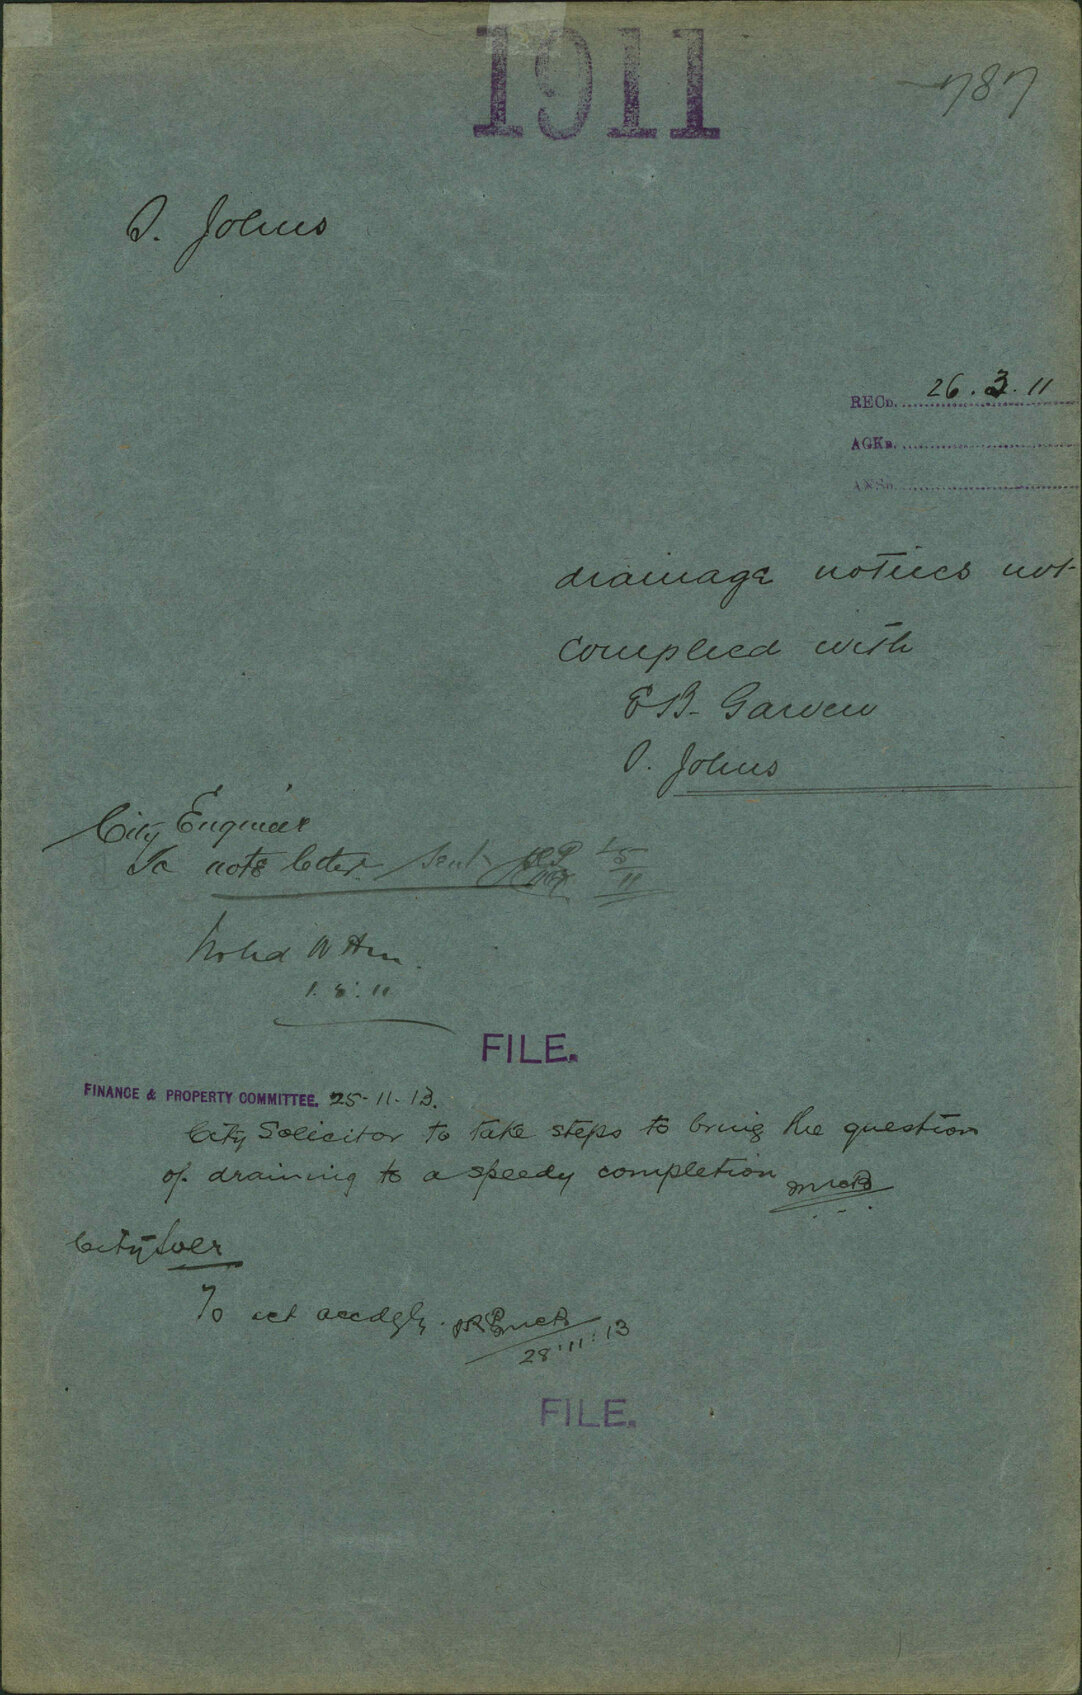 1911
787
J. Johns
RECD. 26.3.11
ACKD.
ANSD.
drainage notices not
complied with
E B- Garven
J. Johns
City Engineer
To note letter sent
Noted
1.8.11
FILE.
FINANCE & PROPERTY COMMITTEE. 25-11-13.
City Solicitor to take steps to bring the question
of draining to a speedy completion
City Solr
To act accdgly.
28:11:13
FILE.